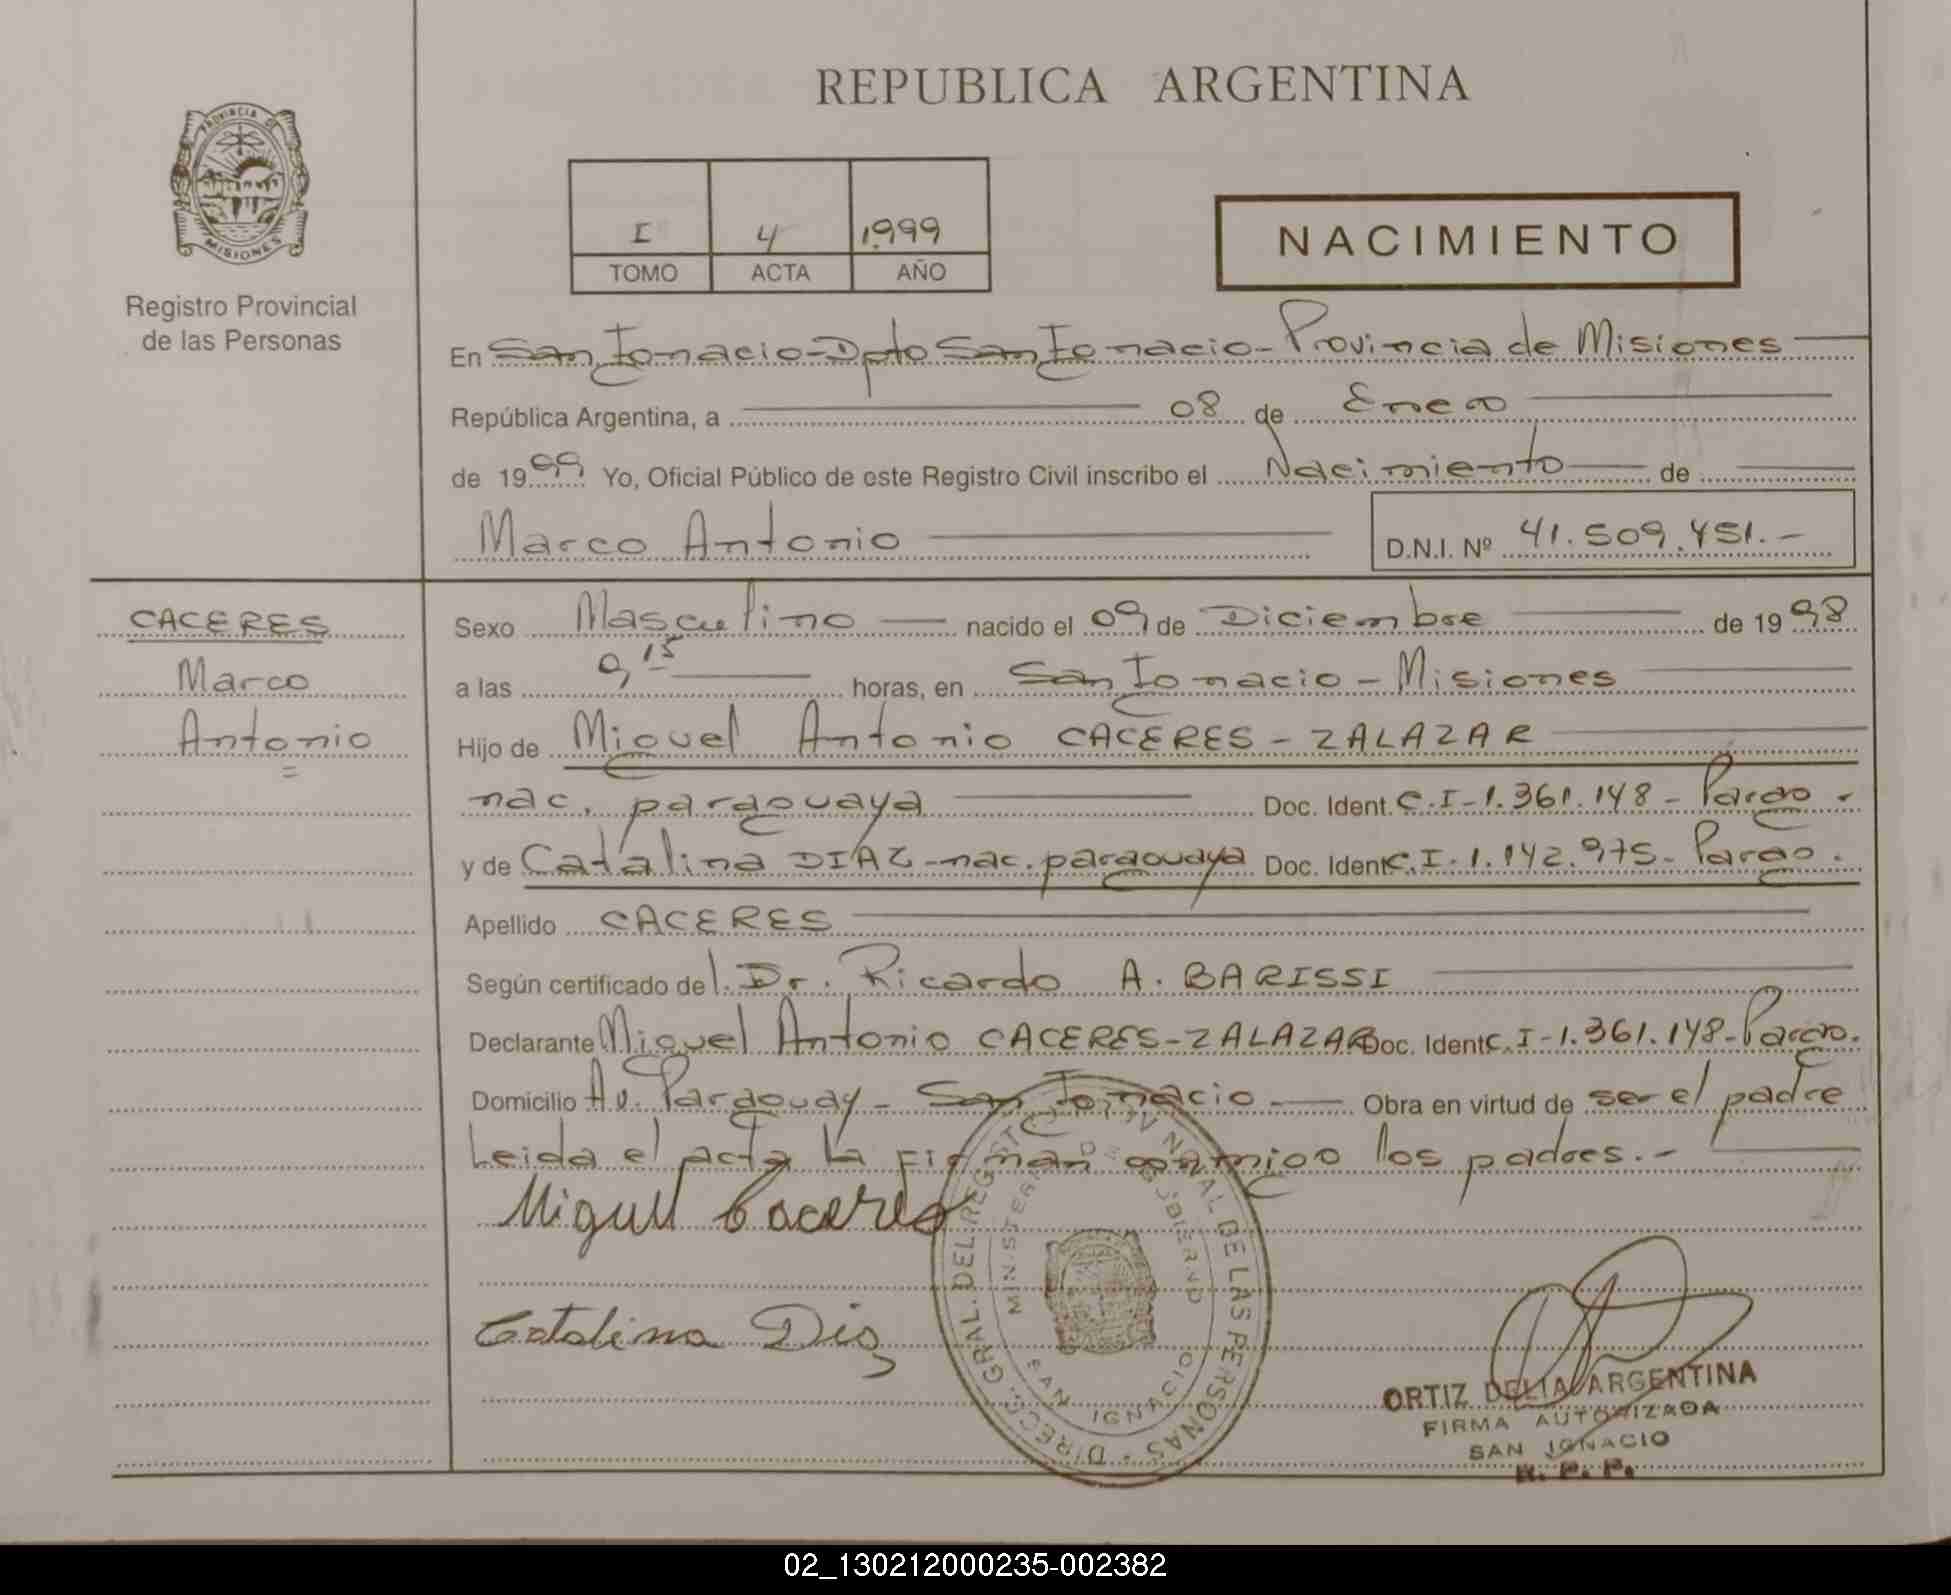 REPUBLICA ARGENTINA
PROVINCIA DE
MISIONES
Registro Provincial
de las Personas
I 4 1999
TOMO ACTA AÑO
NACIMIENTO
En San Ignacio - Dpto San Ignacio - Provincia de Misiones
República Argentina, a 08 de Enero
de 1999 Yo, Oficial Público de este Registro Civil inscribo el Nacimiento de
Marco Antonio D.N.I. Nº 41.509.451.-
CACERES
Marco
Antonio
Sexo Masculino nacido el 09 de Diciembre de 1998
a las 9,15 horas, en San Ignacio - Misiones
Hijo de Miguel Antonio CACERES - ZALAZAR
nac. paraguaya Doc. Ident. C.I-1.361.148- Parag.
y de Catalina DIAZ - nac. paraguaya Doc. Ident C.I-1.142.975- Parag.
Apellido CACERES
Según certificado del Dr. Ricardo A. BARISSI
Declarante Miguel Antonio CACERES-ZALAZAR Doc. Ident C.I-1.361.148- Parag.
Domicilio Av. Paraguay - San Ignacio - Obra en virtud de ser el padre
Leida el acta la firman conmigo los padres.-
Miguel Caceres
Catalina Diaz
DIRECC. GRAL. DEL REGISTRO PROVINCIAL DE LAS PERSONAS
MINISTERIO DE GOBIERNO
SAN IGNACIO
ORTIZ DELIA ARGENTINA
FIRMA AUTORIZADA
SAN IGNACIO
R. P. P.
02_130212000235-002382